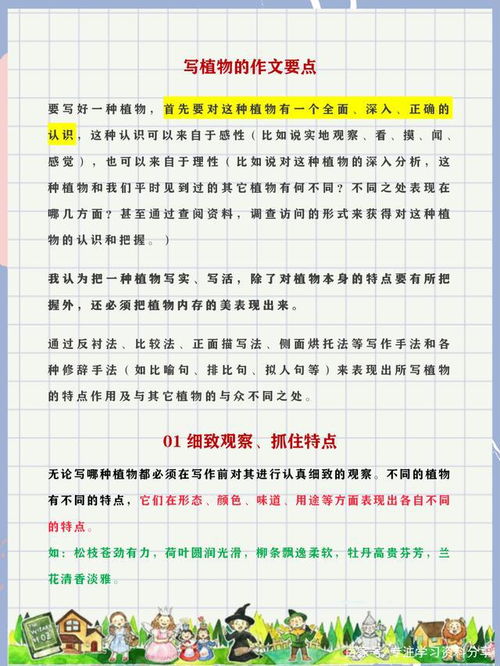 写植物的作文要点
要写好一种植物，首先要对这种植物有一个全面、深入、正确的
认识，这种认识可以来自于感性（比如说实地观察、看、摸、闻、
感觉），也可以来自于理性（比如说对这种植物的深入分析，这
种植物和我们平时见到过的其它植物有何不同？不同之处表现在
哪几方面？甚至通过查阅资料，调查访问的形式来获得对这种植
物的认识和把握。）
我认为把一种植物写实、写活，除了对植物本身的特点要有所把
握外，还必须把植物内存的美表现出来。
通过反衬法、比较法、正面描写法、侧面烘托法等写作手法和各
种修辞手法（如比喻句、排比句、拟人句等）来表现出所写植物
的特点作用及与其它植物的与众不同之处。
01 细致观察、抓住特点
无论写哪种植物都必须在写作前对其进行认真细致的观察。不同的植物
有不同的特点，它们在形态、颜色、味道、用途等方面表现出各自不同
的特点。
如：松枝苍劲有力，荷叶圆润光滑，柳条飘逸柔软，牡丹高贵芬芳，兰
花清香淡雅。
专注学习资料分享